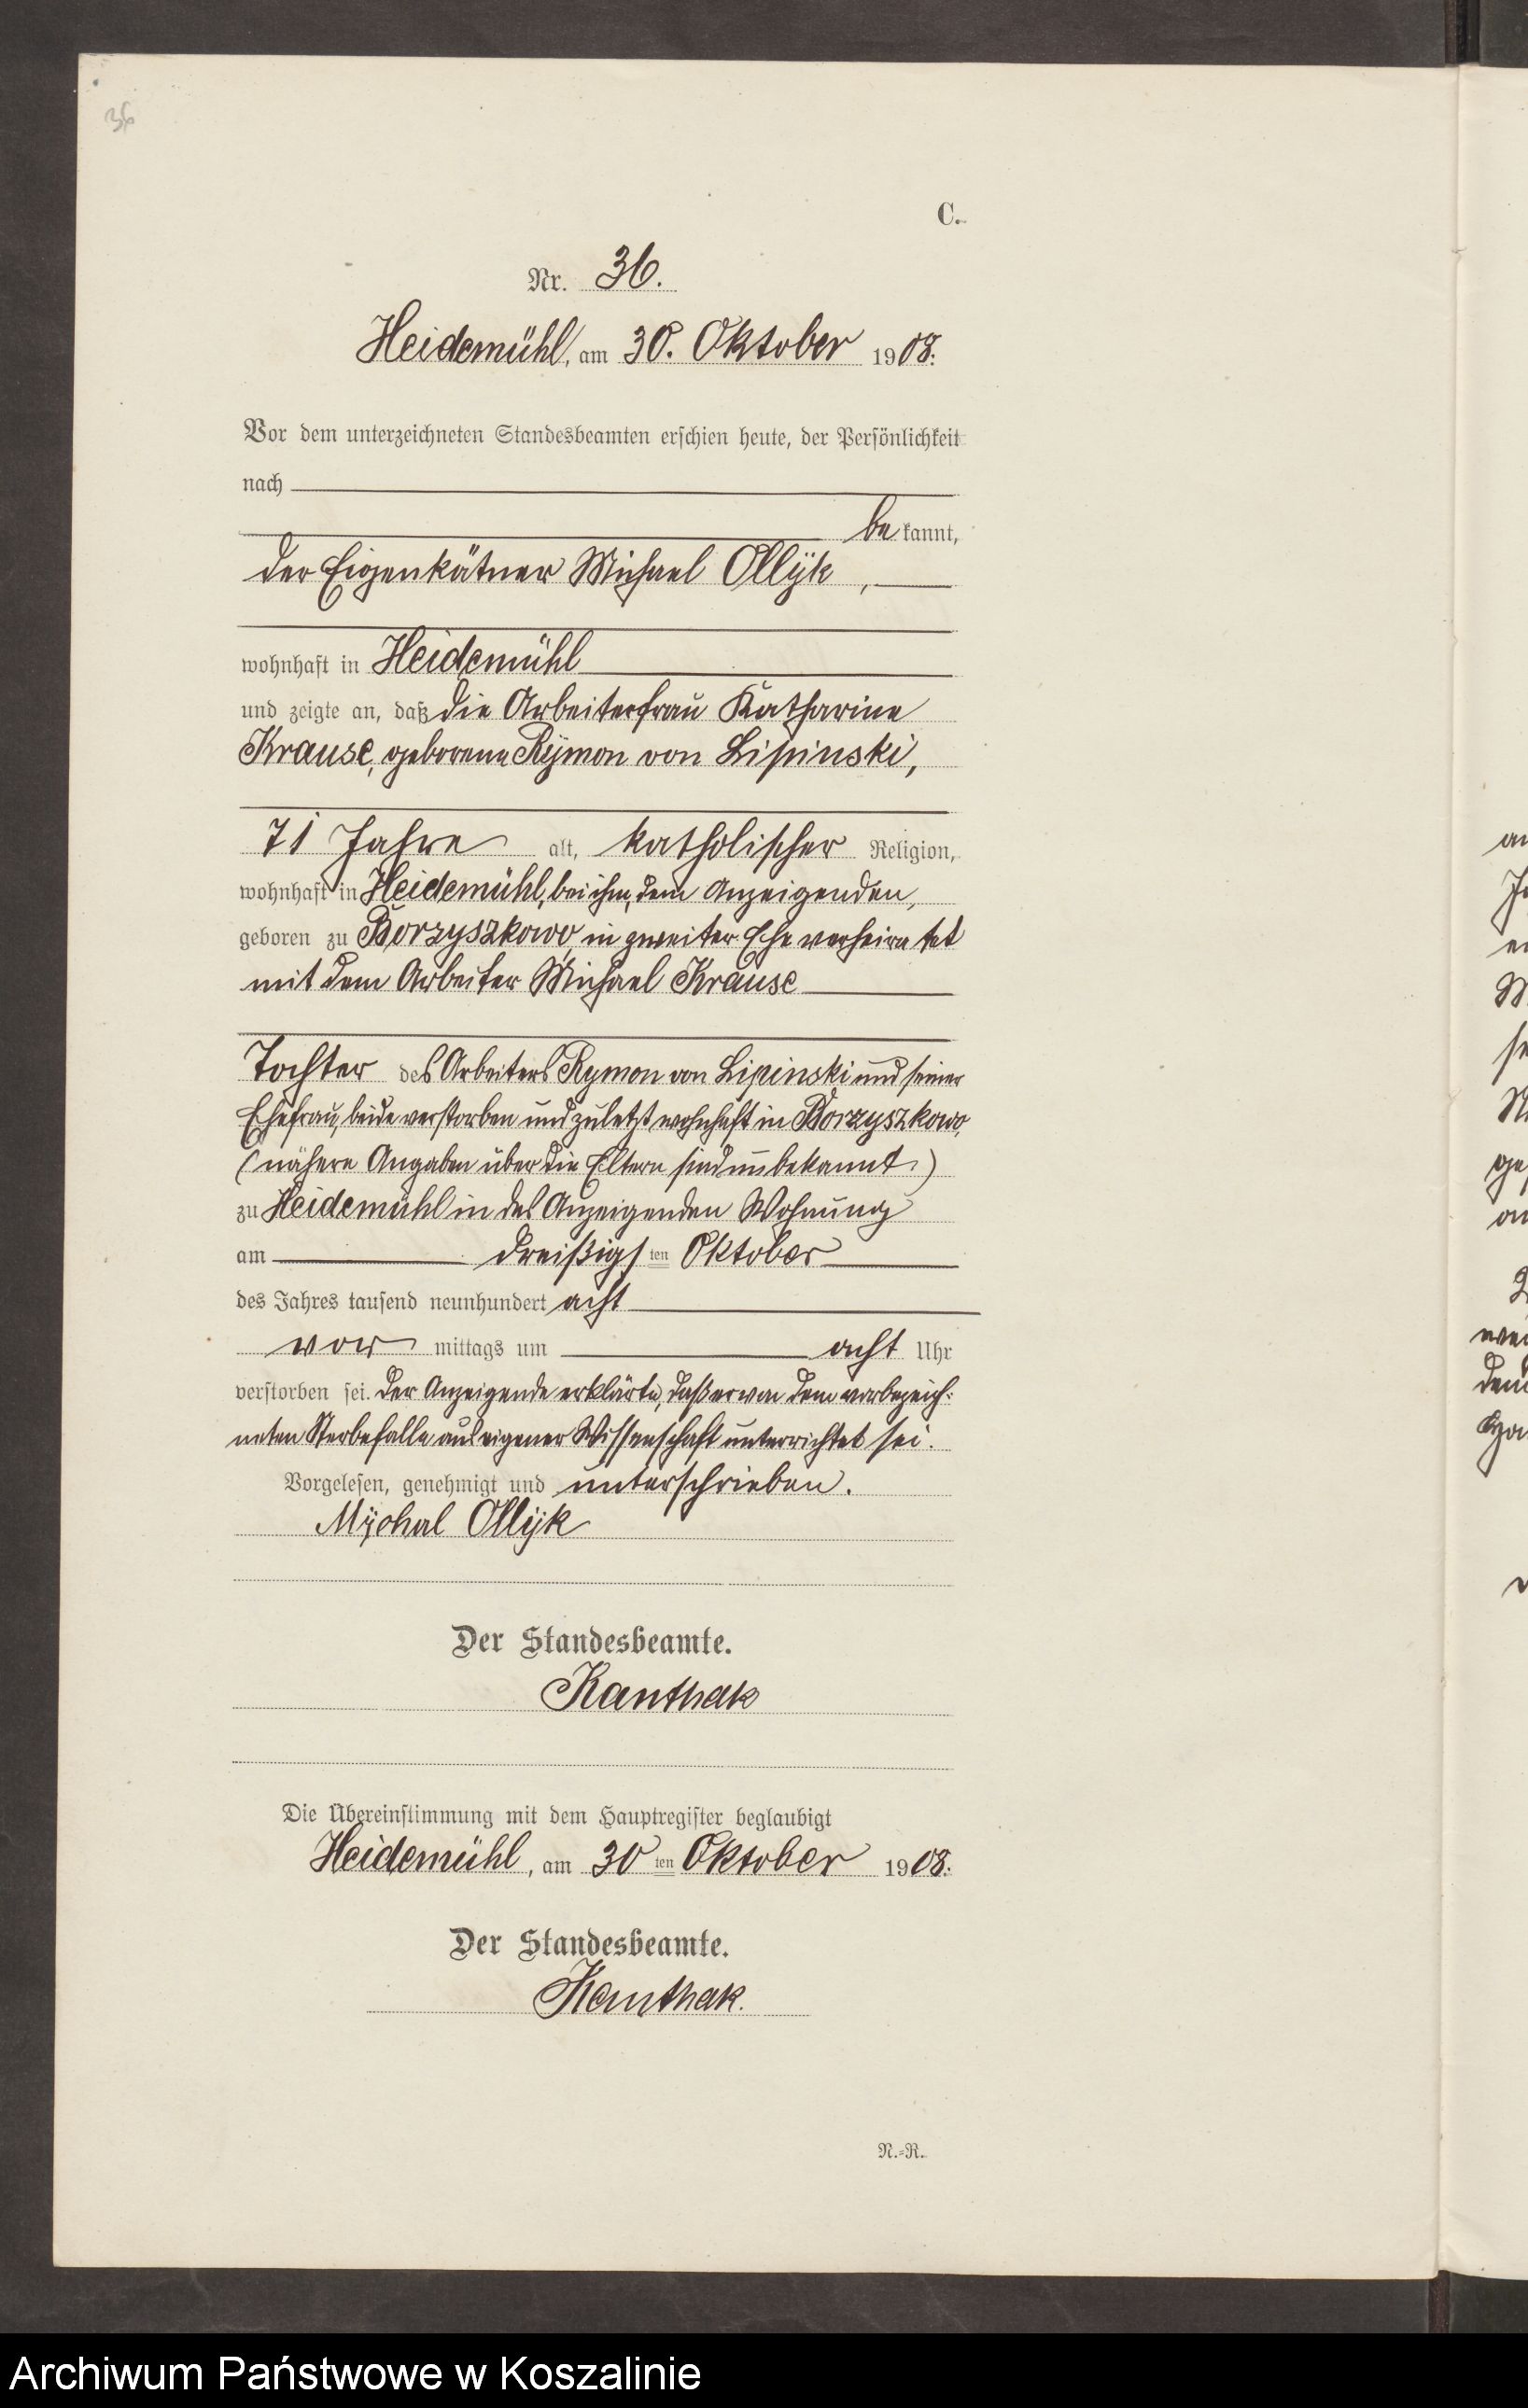 36
C.
Nr. 36.
Heidemühl, am 30. Oktober 1908.
Vor dem unterzeichneten Standesbeamten erschien heute, der Persönlichkeit
nach
be kannt,
der Eigenkätner Michael Ollÿk,
wohnhaft in Heidemühl
und zeigte an, daß die Arbeiterfrau Katharine
Krause, geborene Rÿmon von Lipinski,
71 Jahre alt, katholischer Religion,
wohnhaft in Heidemühl, bei ihm, dem Anzeigenden,
geboren zu Borzyszkowo, in zweiter Ehe verheiratet
mit dem Arbeiter Michael Krause
Tochter des Arbeiters Rymon von Lipinski und seiner
Ehefrau, beide verstorben und zuletzt wohnhaft in Borzyszkowo,
(nähere Angaben über die Eltern sind unbekannt.)
zu Heidemühl in des Anzeigenden Wohnung
am dreißigsten Oktober
des Jahres tausend neunhundert acht
vor mittags um acht Uhr
verstorben sei. Der Anzeigende erklärte, daß er von dem vorbezeich-
neten Sterbefalle aus eigener Wissenschaft unterrichtet sei.
Vorgelesen, genehmigt und unterschrieben.
Mÿchal Ollÿk
Der Standesbeamte.
Kanthak
Die Übereinstimmung mit dem Hauptregister beglaubigt
Heidemühl, am 30 ten Oktober 1908.
Der Standesbeamte.
Kanthak.
N.-R.
Archiwum Państwowe w Koszalinie